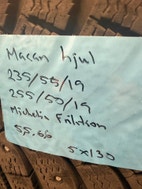 Macan hjul
235/55/19
255/50/19
Michelin
55,60
5x130